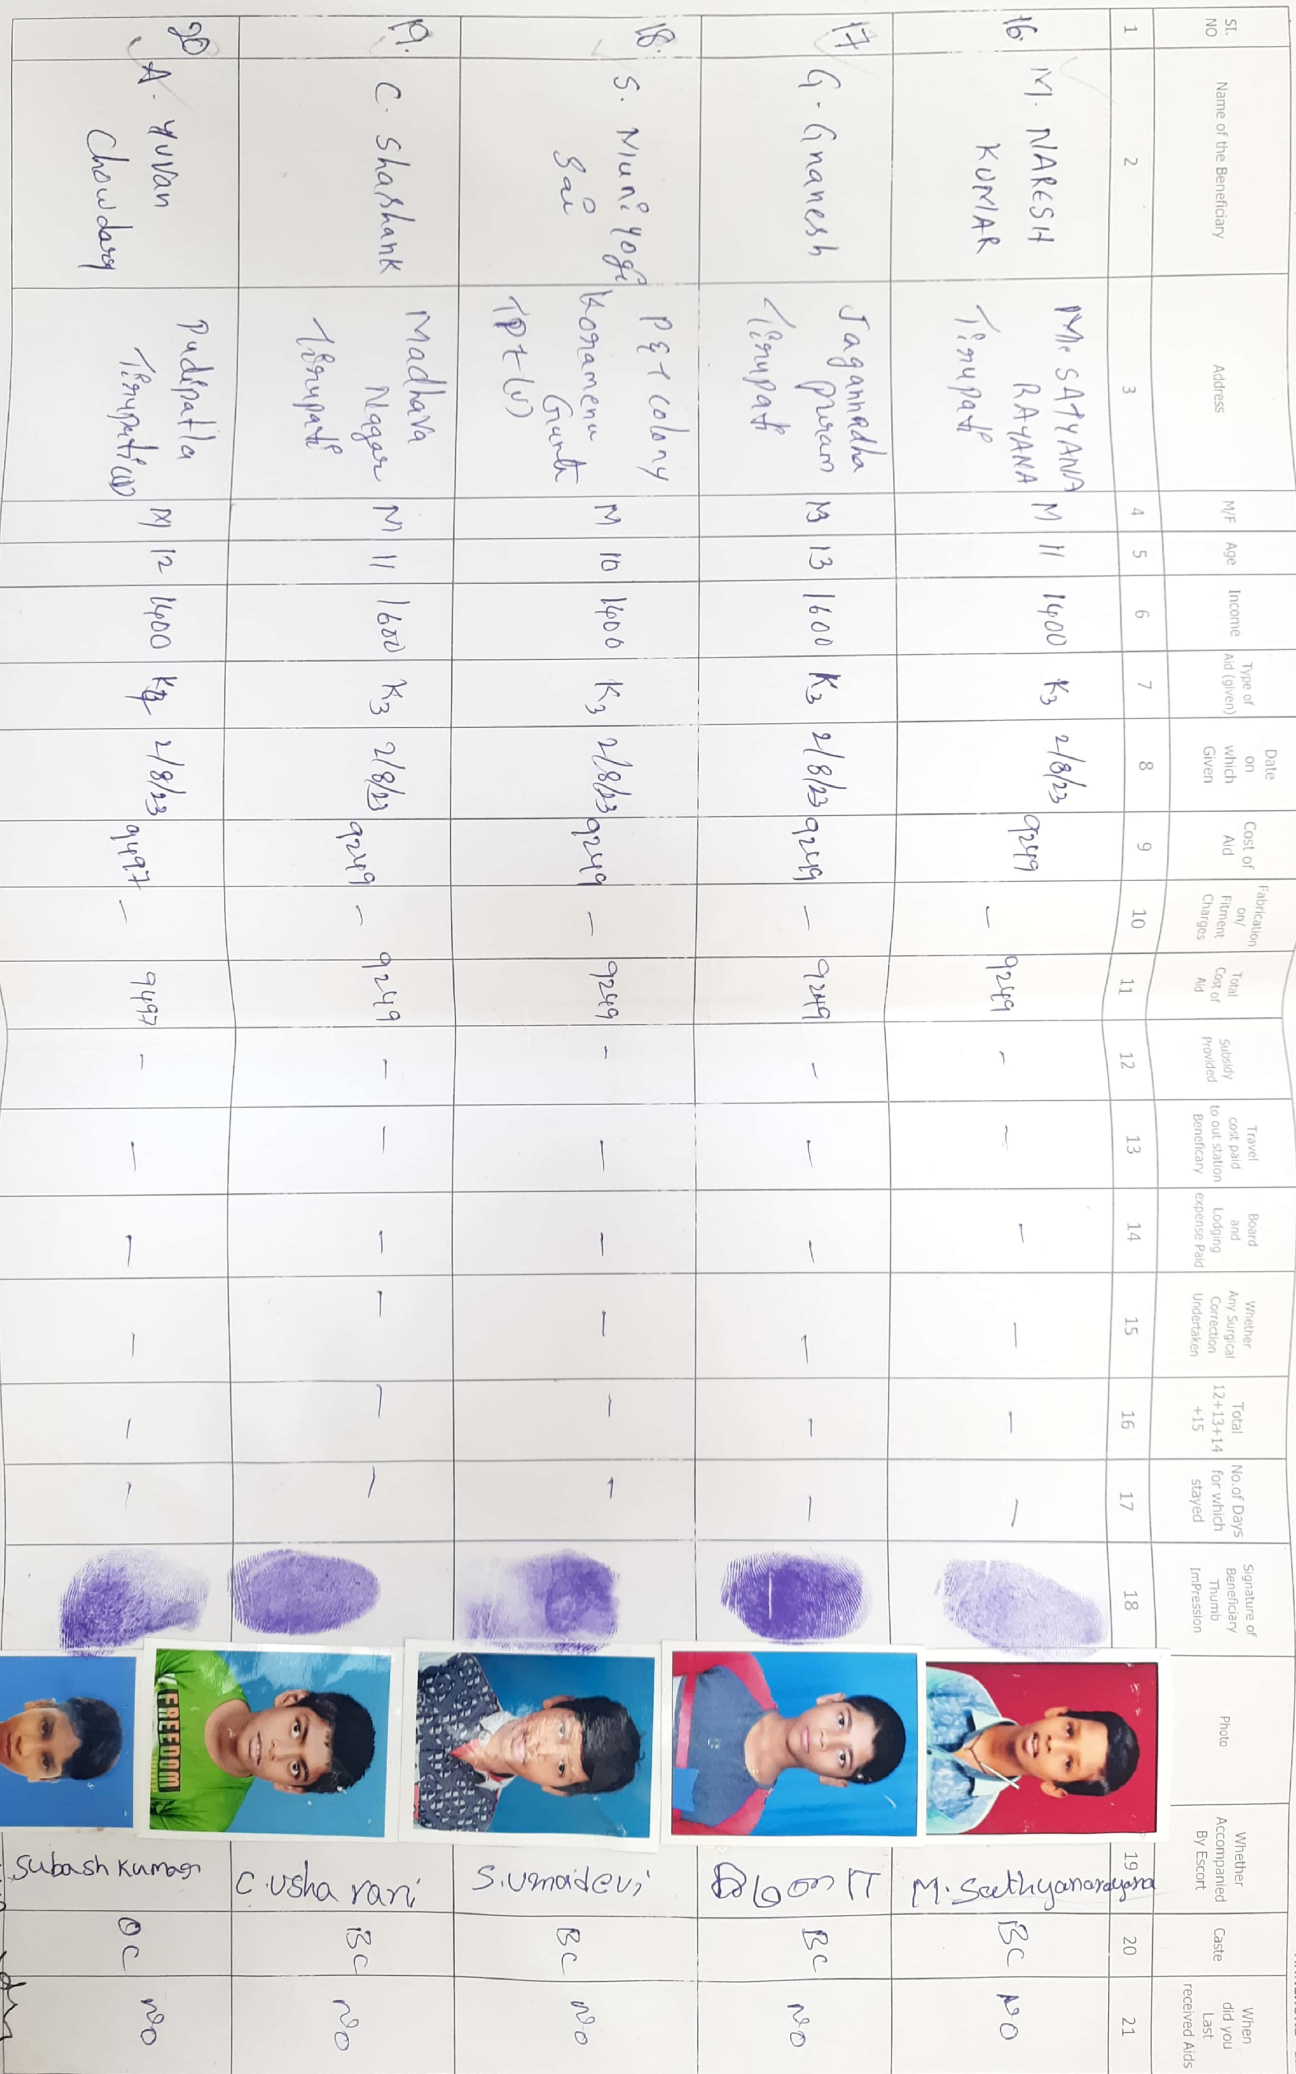 SI.
NO
Name of the Beneficiary
Address
M/F
Age
Income
Type of
Aid (given)
Date
on
which
Given
Cost of
Aid
Fabrication
on/
Fitment
Charges
Total
Cost of
Aid
Subsidy
Provided
Travel
cost paid
to out station
Beneficary
Board
and
Lodging
expense Paid
Whether
Any Surgical
Correction
Undertaken
Total
12+13+14
+15
No.of Days
for which
stayed
Signature of
Beneficiary
Thumb
ImPression
Photo
Whether
Accompanied
By Escort
Caste
When
did you
Last
received Aids
1 2 3 4 5 6 7 8 9 10 11 12 13 14 15 16 17 18 19 20 21
16. M. NARESH
KUMAR
M. SATYANA
RAYANA
Tirupati
M 11 1400 K3 2/8/23 9249 – 9249 – – – – – –
M. Sathyanarayana
BC NO
17 G. Gnanesh
Jagannadha
puram
Tirupati
M 13 1600 K3 2/8/23 9249 – 9249 – – – – – –
BC NO
18. S. Muni Yogi
Sai
P&T colony
Koramenu
Gunta
TPT (U)
M 10 1400 K3 2/8/23 9249 – 9249 – – – – – –
S. Umadevi
BC NO
19. C. Shashank
Madhava
Nagar
Tirupati
M 11 1600 K3 2/8/23 9249 – 9249 – – – – – –
FREEDOM
C. Usha rani
BC NO
20 A. Yuvan
Chowdary
Pudipatla
Tirupati
M 12 1400 2/8/23 9497 – 9497 – – – – – –
Subash Kumar
OC NO